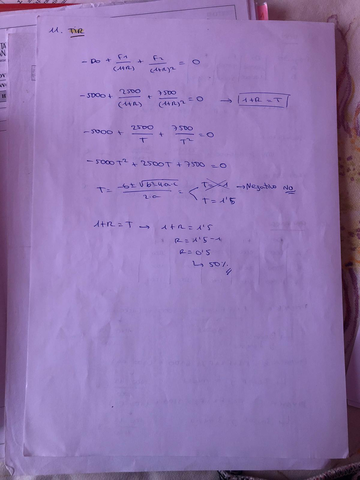 11. TIR
-D0 + F1/(1+R) + F2/(1+R)² = 0
-5000 + 2500/(1+R) + 7500/(1+R)² = 0 → 1+R = T
-5000 + 2500/T + 7500/T² = 0
-5000T² + 2500T + 7500 = 0
T = -b ± √b² - 4·a·c / 2·a = < T = -1 → Negativo No
T = 1'5
1+R = T → 1+R = 1'5
R = 1'5 - 1
R = 0'5
↳ 50%